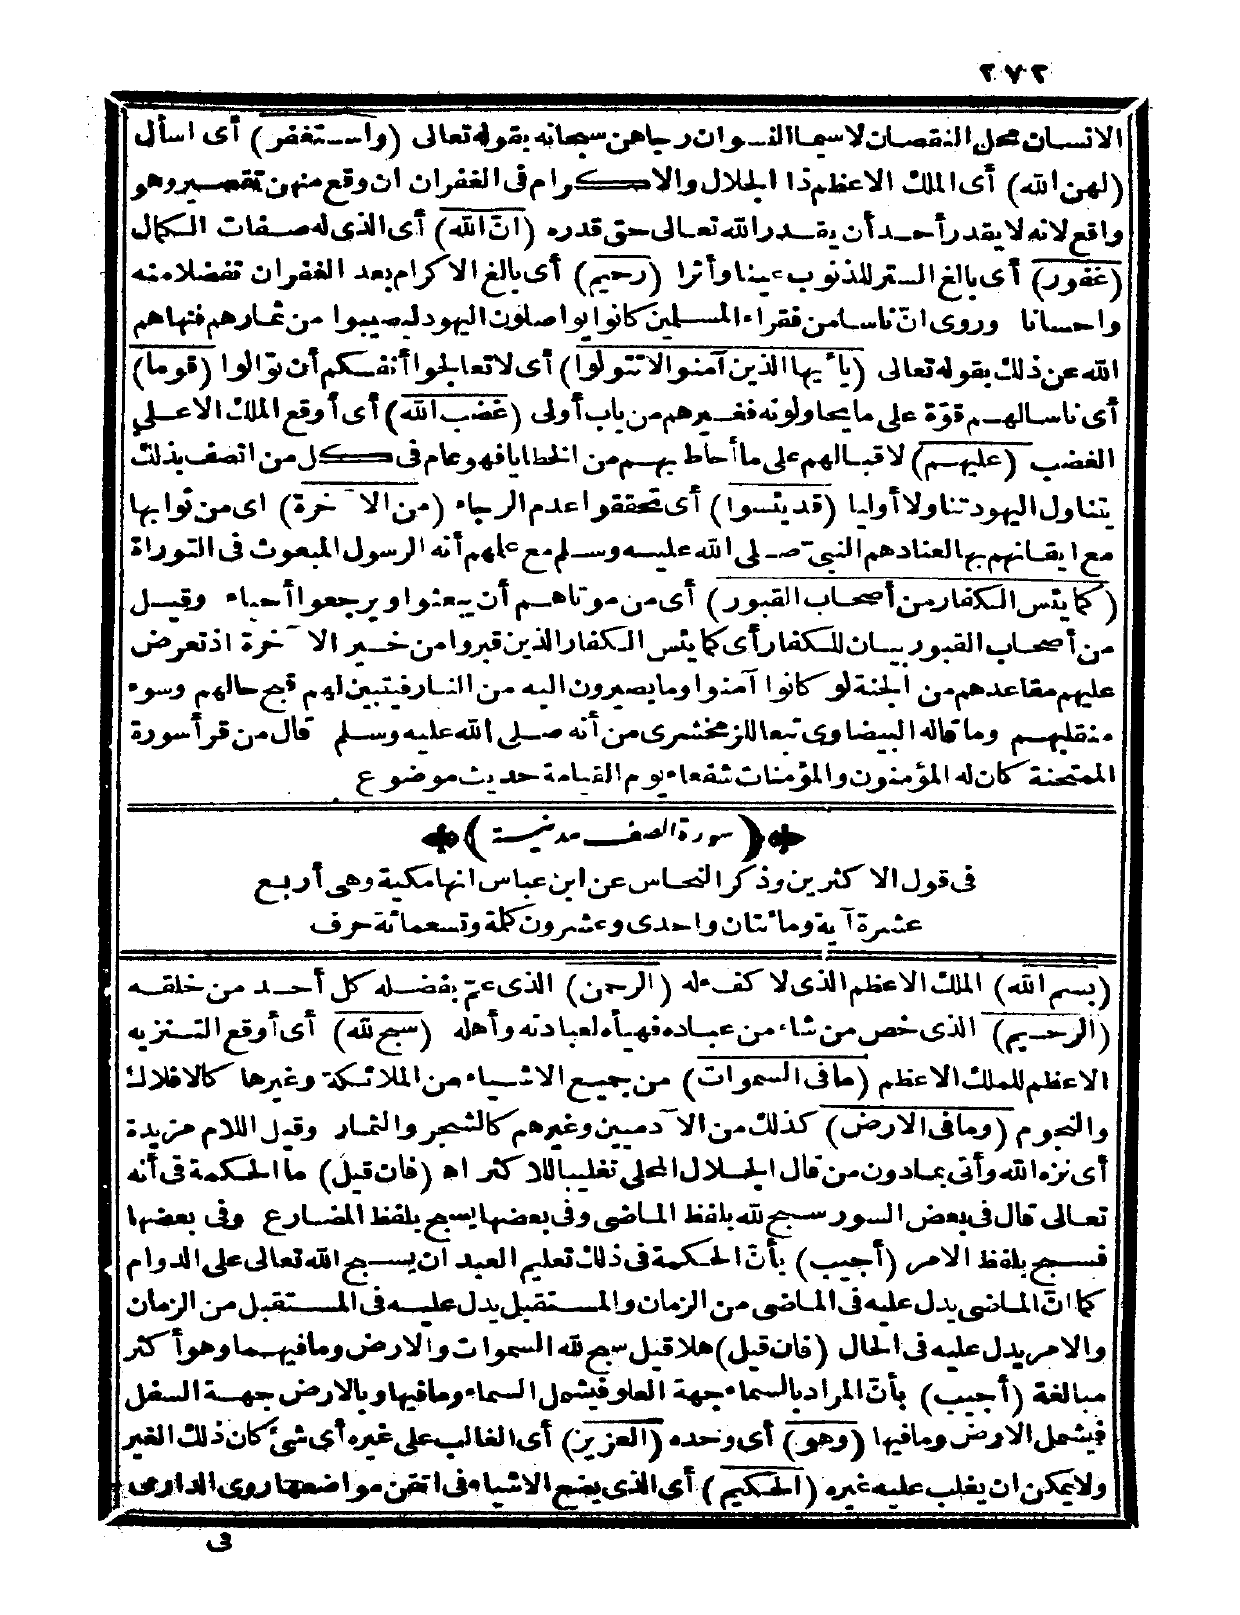 ٢٧٢
الانسان محل النقصان لاسيما النسوان رجاهن سبحانه بقوله تعالى (واستغفر) أى اسأل
(لهن الله) أى الملك الاعظم ذا الجلال والاكرام فى الغفران ان وقع منهن تقصير وهو
واقع لانه لا يقدر أحد أن يقدر الله تعالى حق قدره (انّ الله) أى الذى له صفات الكمال
(غفور) أى بالغ الستر للذنوب عينا وأثرا (رحيم) أى بالغ الاكرام بعد الغفران تفضلا منه
واحسانا وروى انّ ناسا من فقراء المسلمين كانوا يواصلون اليهود ليصيبوا من ثمارهم فنهاهم
الله عن ذلك بقوله تعالى (يا أيها الذين آمنوا لا تتولوا) أى لا تعالجوا أنفسكم أن توالوا (قوما)
أى ناسا لهم قوّة على ما يحاولونه فغيرهم من باب أولى (غضب الله) أى أوقع الملك الاعلى
الغضب (عليهم) لاقبالهم على ما أحاط بهم من الخطايا فهو عام فى كل من اتصف بذلك
يتناول اليهود تناولا أوليا (قد يئسوا) أى تحققوا عدم الرجاء (من الآخرة) اى من ثوابها
مع ايقانهم بها لعنادهم النبىّ صلى الله عليه وسلم مع علمهم أنه الرسول المبعوث فى التوراة
(كما يئس الكفار من أصحاب القبور) أى من موتاهم أن يبعثوا ويرجعوا أحياء وقيل
من أصحاب القبور بيان للكفار أى كما يئس الكفار الذين قبروا من خير الآخرة اذ تعرض
عليهم مقاعدهم من الجنة لو كانوا آمنوا وما يصيرون اليه من النار فيتبين لهم قبح حالهم وسوء
منقلبهم وما قاله البيضاوى تبعا للزمخشرى من أنه صلى الله عليه وسلم قال من قرأ سورة
الممتحنة كان له المؤمنون والمؤمنات شفعاء يوم القيامة حديث موضوع
(سورة الصف مدنية)
فى قول الاكثرين وذكر النحاس عن ابن عباس انها مكية وهى أربع
عشرة آية ومائتان واحدى وعشرون كلمة وتسعمائة حرف
(بسم الله) الملك الاعظم الذى لا كفء له (الرحمن) الذى عمّ بفضله كل أحد من خلقه
(الرحيم) الذى خص من شاء من عباده فهيأه لعبادته وأهله (سبح لله) أى أوقع التنزيه
الاعظم للملك الاعظم (ما فى السموات) من جميع الاشياء من الملائكة وغيرها كالافلاك
والنجوم (وما فى الارض) كذلك من الآدميين وغيرهم كالشجر والثمار وقيل اللام مزيدة
أى نزه الله وأتى بما دون من قال الجلال المحلى تغليبا للاكثر اه (فان قيل) ما الحكمة فى أنه
تعالى قال فى بعض السور سبح لله بلفظ الماضى وفى بعضها يسبح بلفظ المضارع وفى بعضها
فسبح بلفظ الامر (أجيب) بأنّ الحكمة فى ذلك تعليم العبد ان يسبح الله تعالى على الدوام
كما انّ الماضى يدل عليه فى الماضى من الزمان والمستقبل يدل عليه فى المستقبل من الزمان
والامر يدل عليه فى الحال (فان قيل) هلا قيل سبح لله السموات والارض وما فيهما وهو أكثر
مبالغة (أجيب) بأنّ المراد بالسماء جهة العلو فيشمل السماء وما فيها وبالارض جهة السفل
فيشمل الارض وما فيها (وهو) أى وحده (العزيز) أى الغالب على غيره أى شئ كان ذلك الغير
ولا يمكن ان يغلب عليه غيره (الحكيم) أى الذى يضع الاشياء فى اتقن مواضعها روى الدارمى
فى